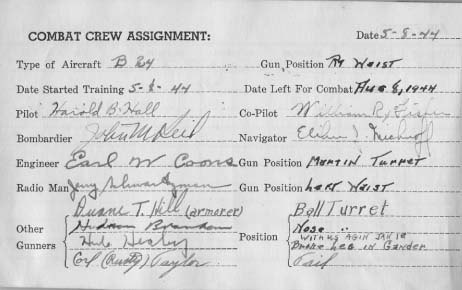 COMBAT CREW ASSIGNMENT: Date 5-8-44
Type of Aircraft B 24 Gun Position Rt Waist
Date Started Training 5-8-44 Date Left For Combat Aug 8, 1944
Pilot Harold B. Hall Co-Pilot William R.
Bombardier John M Reid Navigator
Engineer Earl W Coons Gun Position Martin Turret
Radio Man Jerry Schwartzman Gun Position Left Waist
Other Gunners Position
Duane T. Hill (armorer) Ball Turret
Hudson Nose "
With us agin Jan 18
Broke leg in Gander
Cpl (Rusty) Taylor Tail